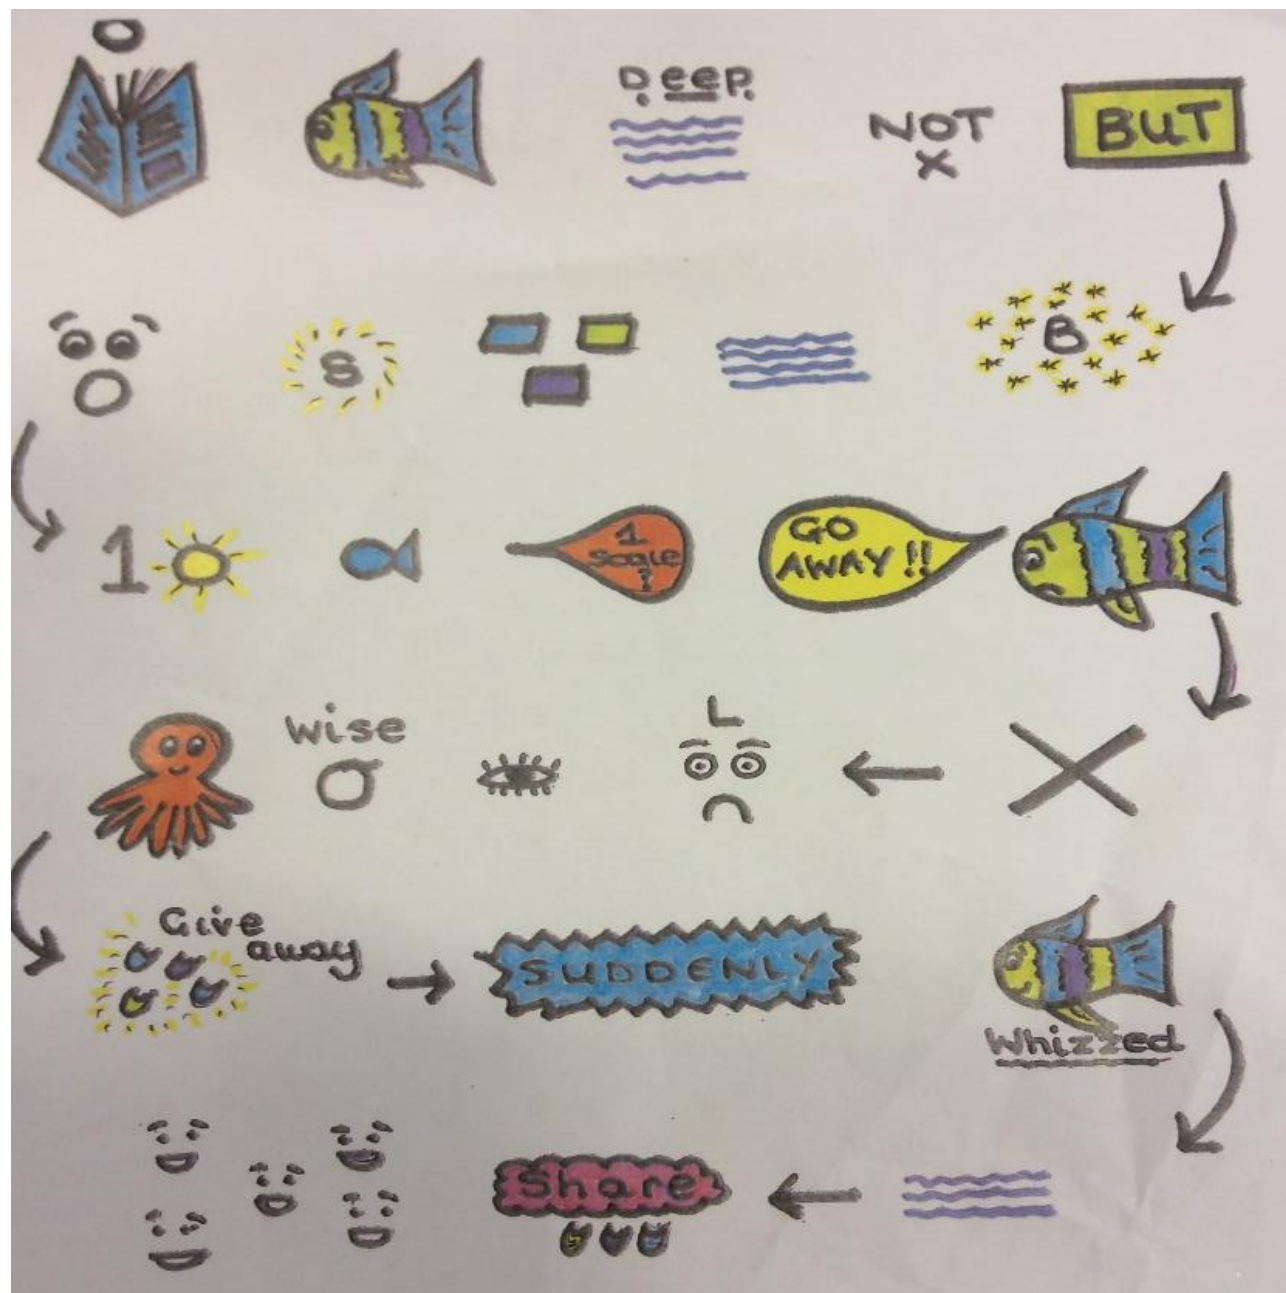 Deep
NOT
X
BUT
S
B
1
1 Scale ?
GO AWAY !!
Wise
L
Give away
SUDDENLY
Whizzed
Share